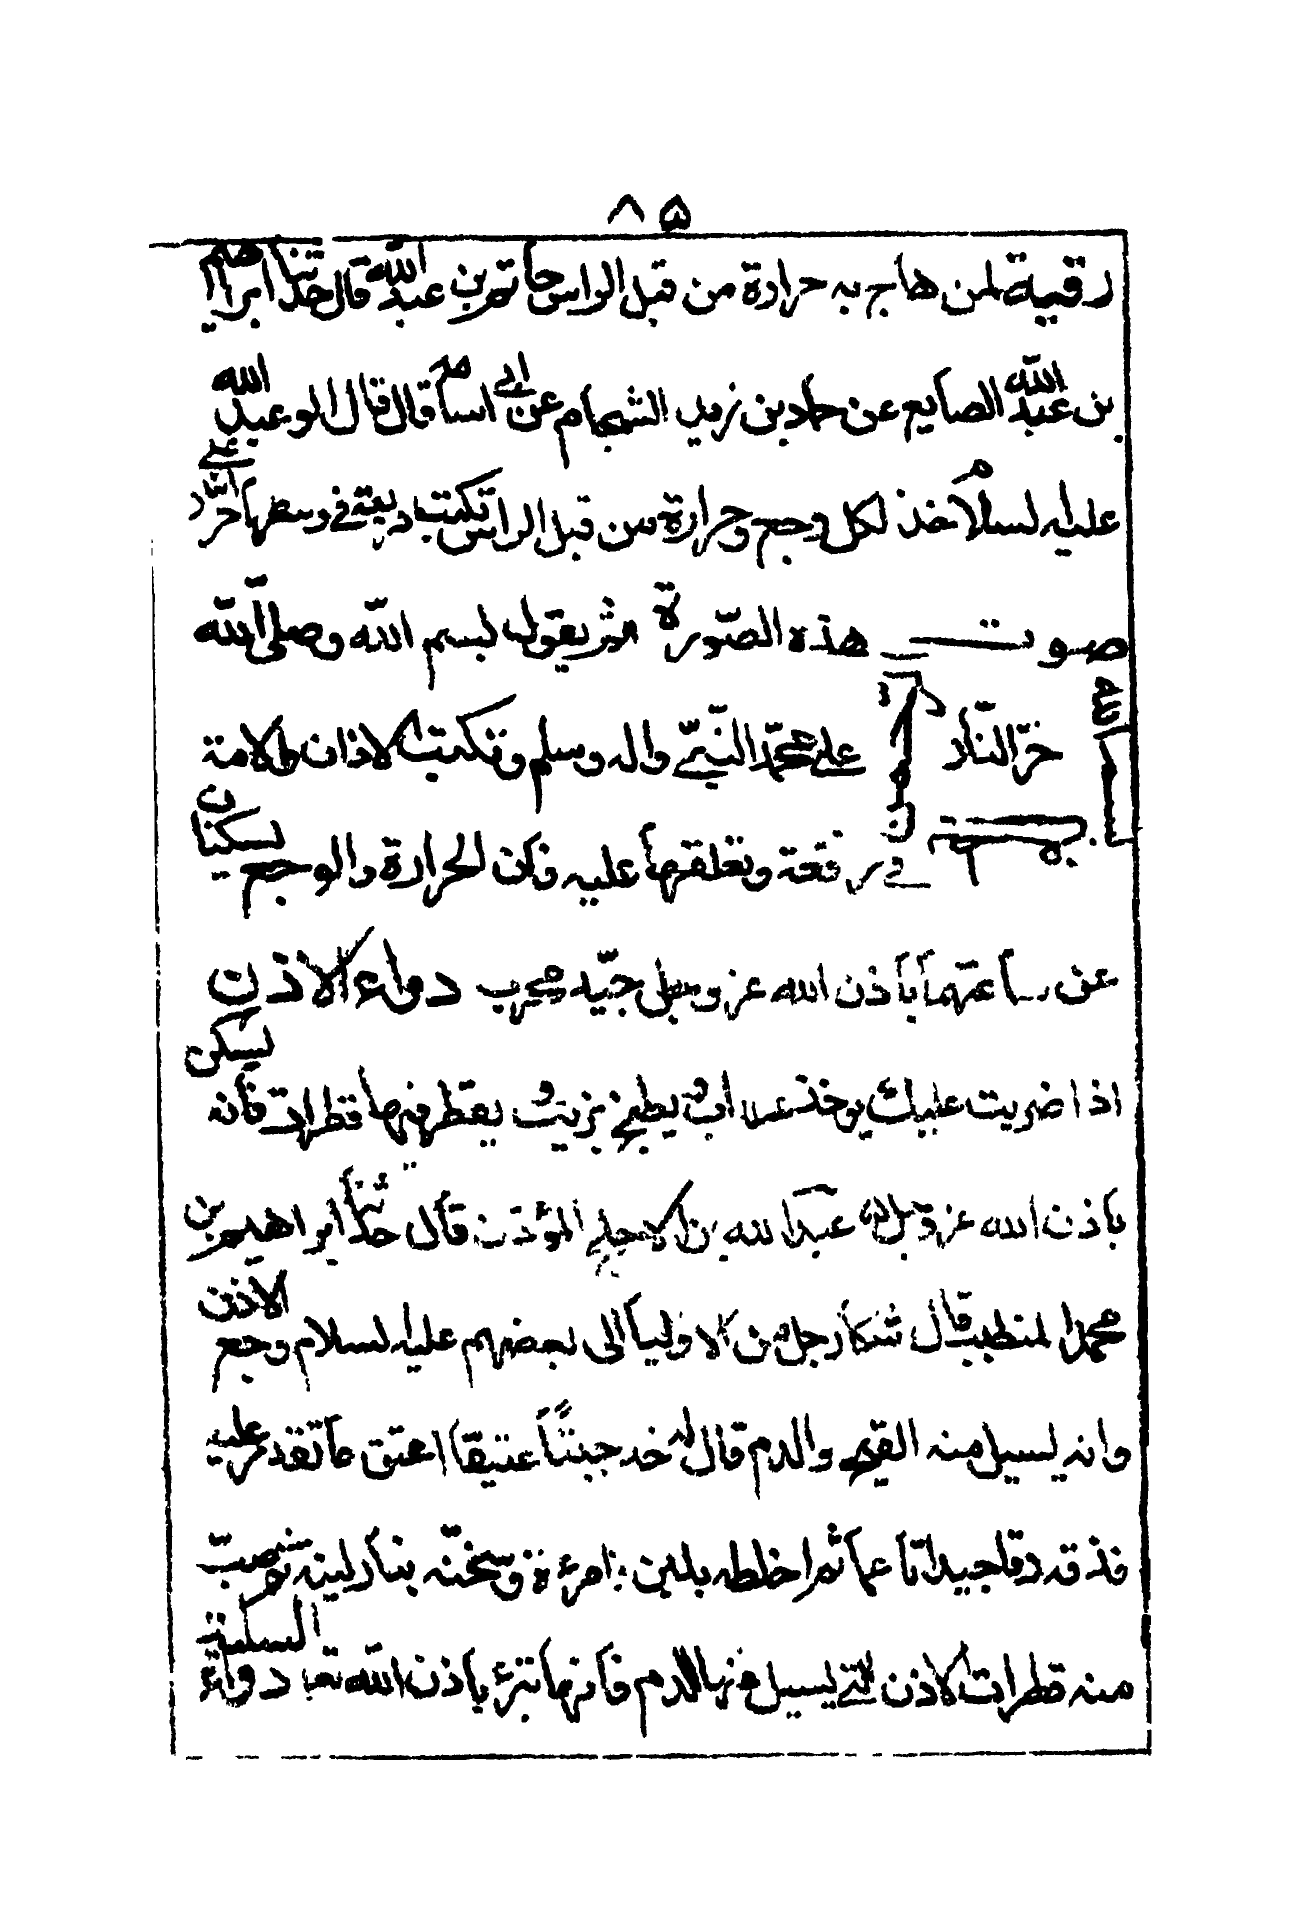 ٨٥
رقية لمن هاج به حرارة من قبل الراس حاتم بن عبد الله قال حدثنا ابراهيم
بن عبد الله الصايع عن حماد بن زيد الشحام عن ابي اسامه قال قال ابو عبد الله
عليه لسلام خذ لكل وجع وحرارة من قبل الراس تكتب مربعة في وسطها حر النار على
صورت هذه الصورة ثم يقول بسم الله وصلى الله
حر النار على محمد النبي واله وسلم وتكتب الاذان والاقامة
في رقعة وتعلقها عليه فان الحرارة والوجع يسكنان
عن ساعتهما باذن الله عز وجل جيد مجرب دواء الاذن
اذا ضربت عليك يوخذ سداب ويطبخ بزيت ويقطر فيها قطرات فانه يسكن
باذن الله عز وجل عبد الله بن الاجلح المؤذن قال حدثنا ابراهيم بن
محمد المتطبب قال شكا رجل من الاولياء الى بعضهم عليه لسلام وجع الاذن
وانه يسيل منه القيح والدم قال له خذ جبنا عتيقا اعتق ما تقدر عليه
فدقه دقا جيدا ناعما ثم اخلطه بلبن امرءة وسخنه بنار لينة ثم صب
منه قطرات الاذن التي يسيل منها الدم فانها تبرء باذن الله تعا دواء السكينة